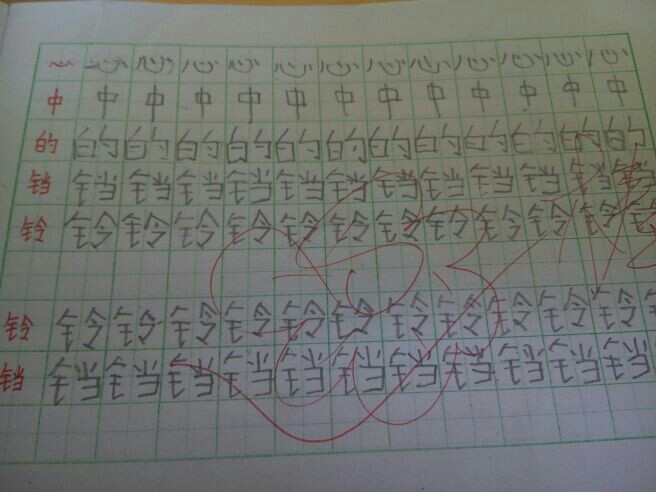 心心心心心心心心心心心心心
中中中中中中中中中中中中中
的的的的的的的的的的的的的
铛铛铛铛铛铛铛铛铛铛铛铛铛
铃铃铃铃铃铃铃铃铃铃铃铃铃
铃铃铃铃铃铃铃铃铃铃铃铃铃
铛铛铛铛铛铛铛铛铛铛铛铛